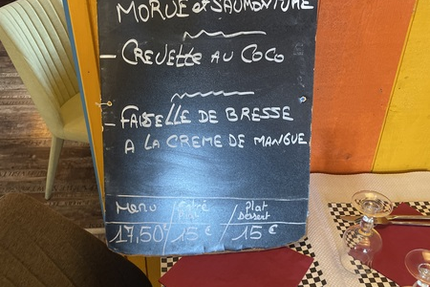 MORUE et SAUMON FUMÉ
- CREVETTE AU COCO
- FAISELLE DE BRESSE
A LA CREME DE MANGUE
MENU / Entrée / Plat Dessert
17,50 / 15€ / 15€